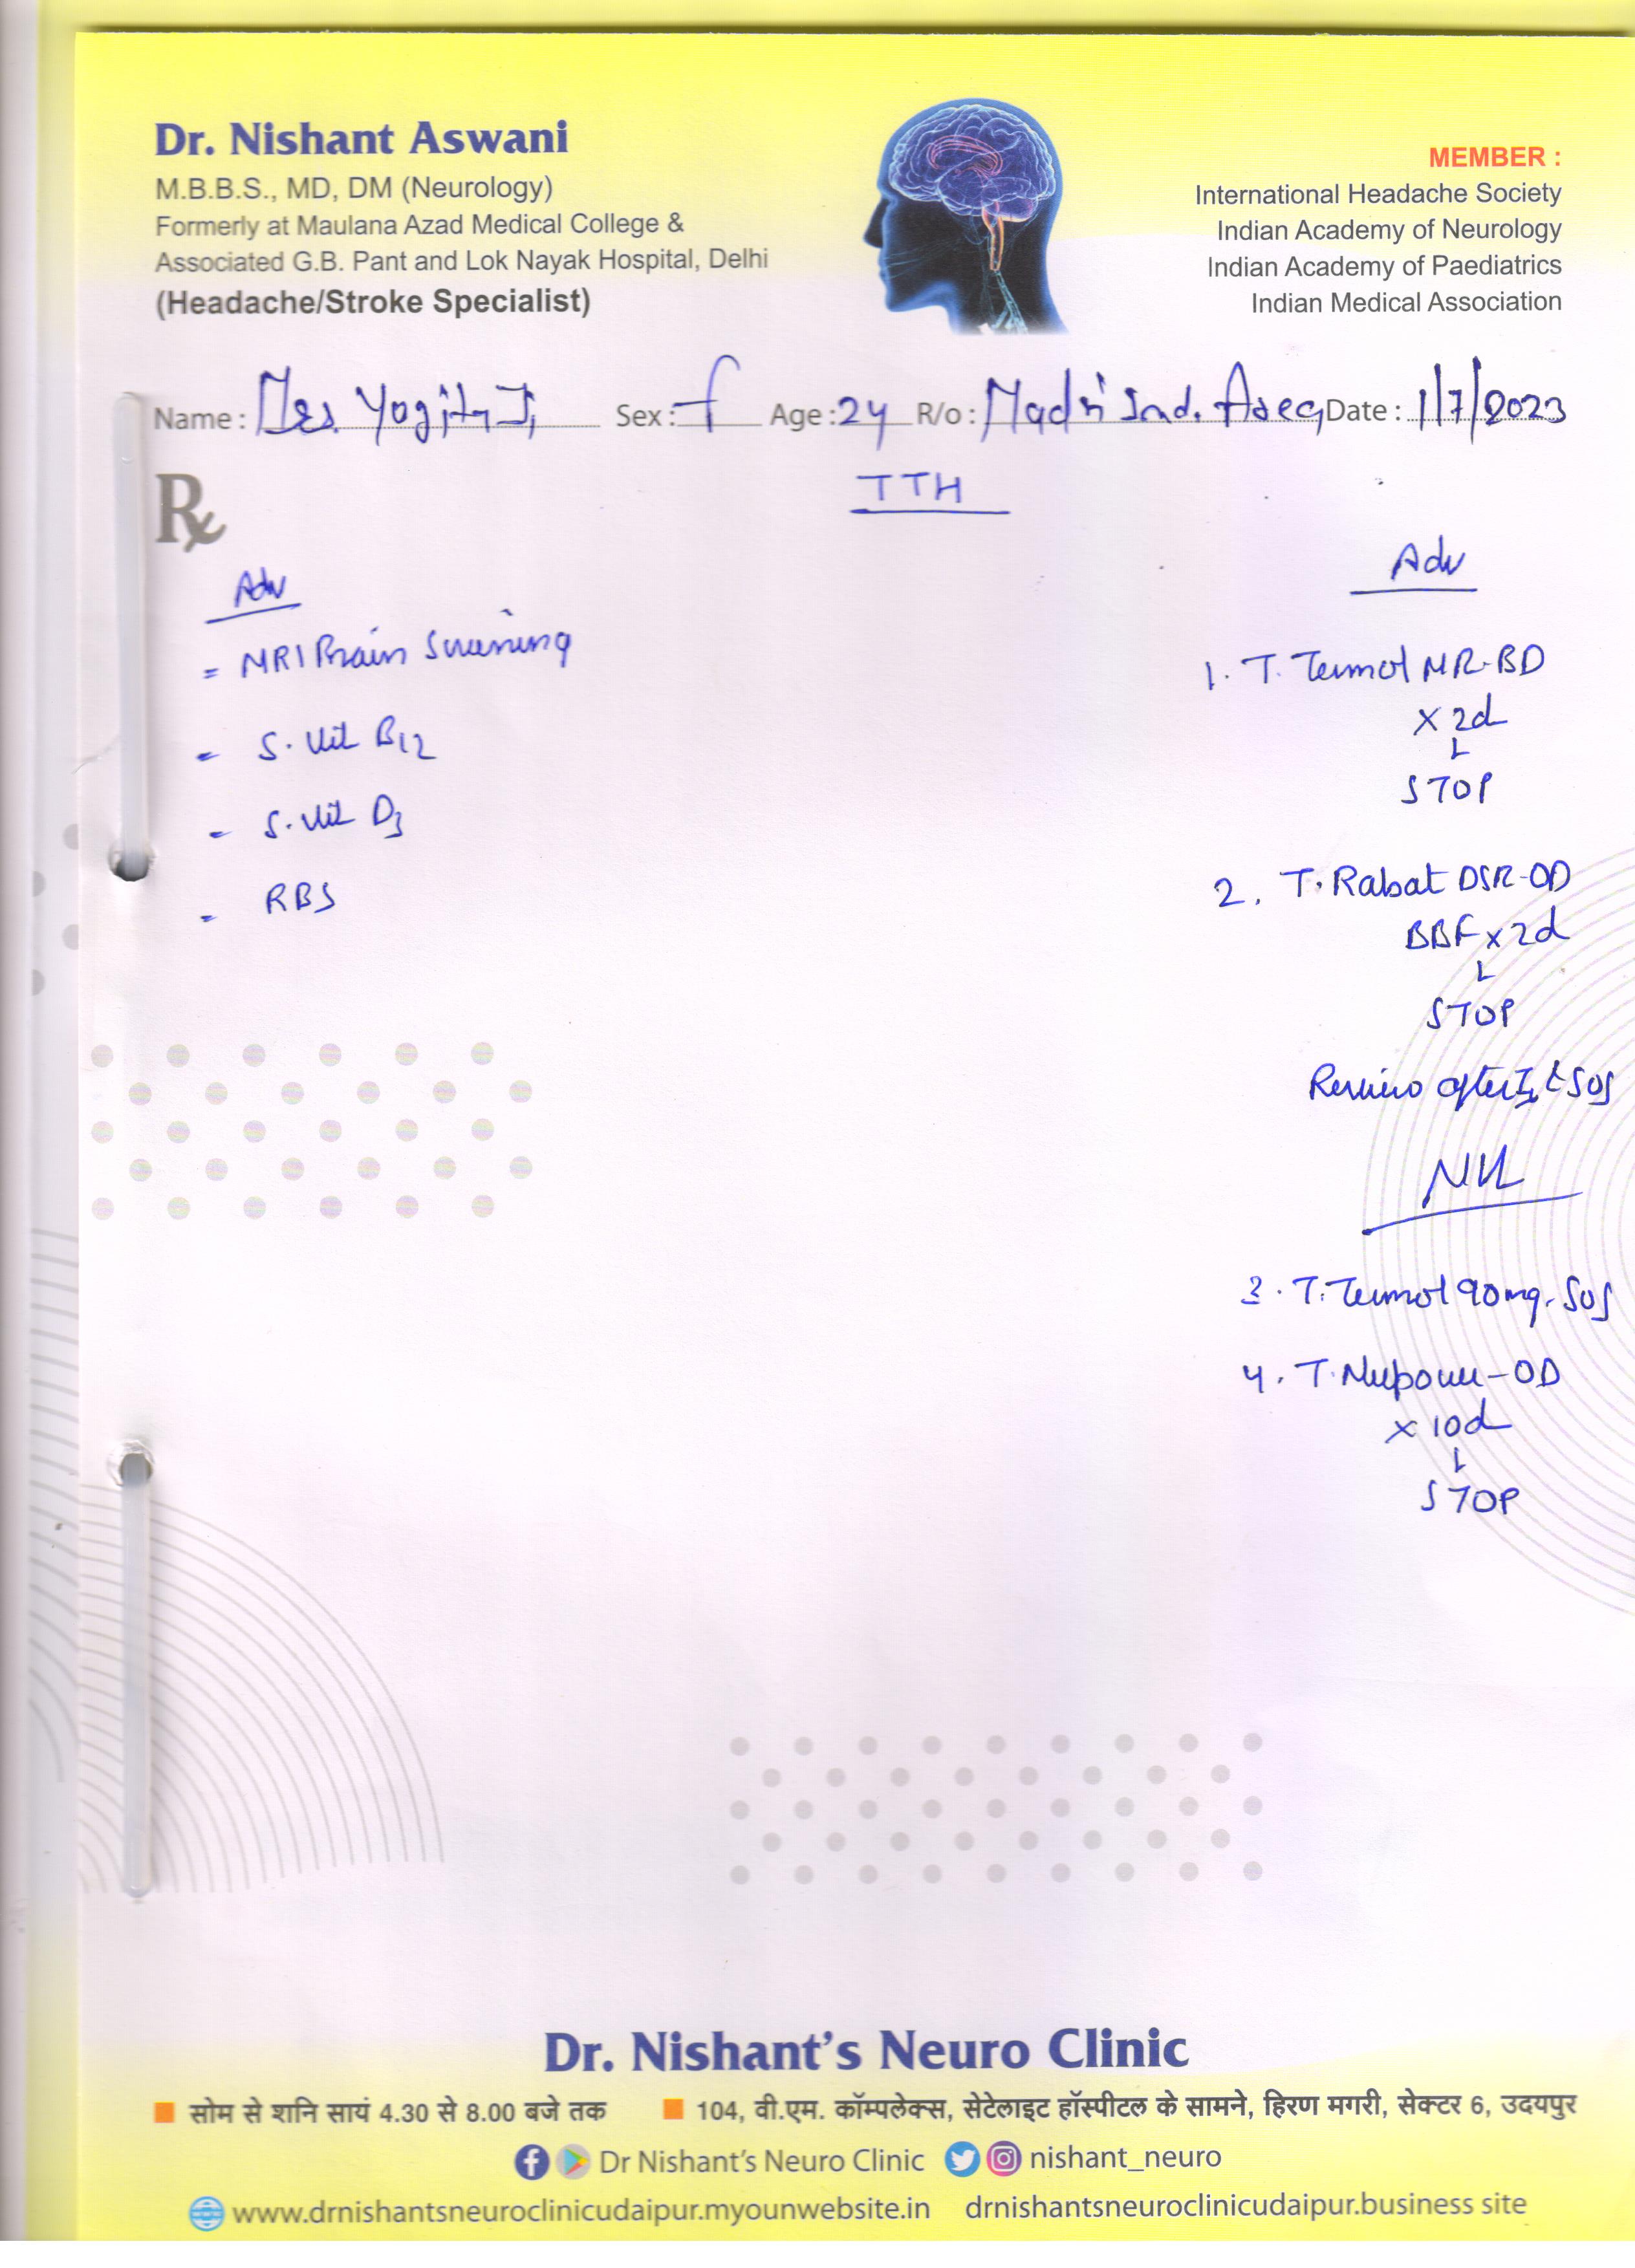 Dr. Nishant Aswani
M.B.B.S., MD, DM (Neurology)
Formerly at Maulana Azad Medical College &
Associated G.B. Pant and Lok Nayak Hospital, Delhi
(Headache/Stroke Specialist)
MEMBER :
International Headache Society
Indian Academy of Neurology
Indian Academy of Paediatrics
Indian Medical Association
Name : Sex : F Age : 24 R/o : Madri Ind. Area Date : 1/7/2023
TTH
Rx
Adv
= MRI Brain Screening
- S. Vit B12
- S. Vit D3
- RBS
Adv
1. T. MR-BD
x 2d
↓
STOP
2. T. Rabat DSR-OD
BBF x 2d
↓
STOP
Review after & SOS
3. T. 90mg. SOS
4. T. -OD
x 10d
↓
STOP
Dr. Nishant's Neuro Clinic
सोम से शनि सायं 4.30 से 8.00 बजे तक
104, वी.एम. कॉम्पलेक्स, सेटेलाइट हॉस्पीटल के सामने, हिरण मगरी, सेक्टर 6, उदयपुर
Dr Nishant's Neuro Clinic nishant_neuro
www.drnishantsneuroclinicudaipur.myounwebsite.in drnishantsneuroclinicudaipur.business site